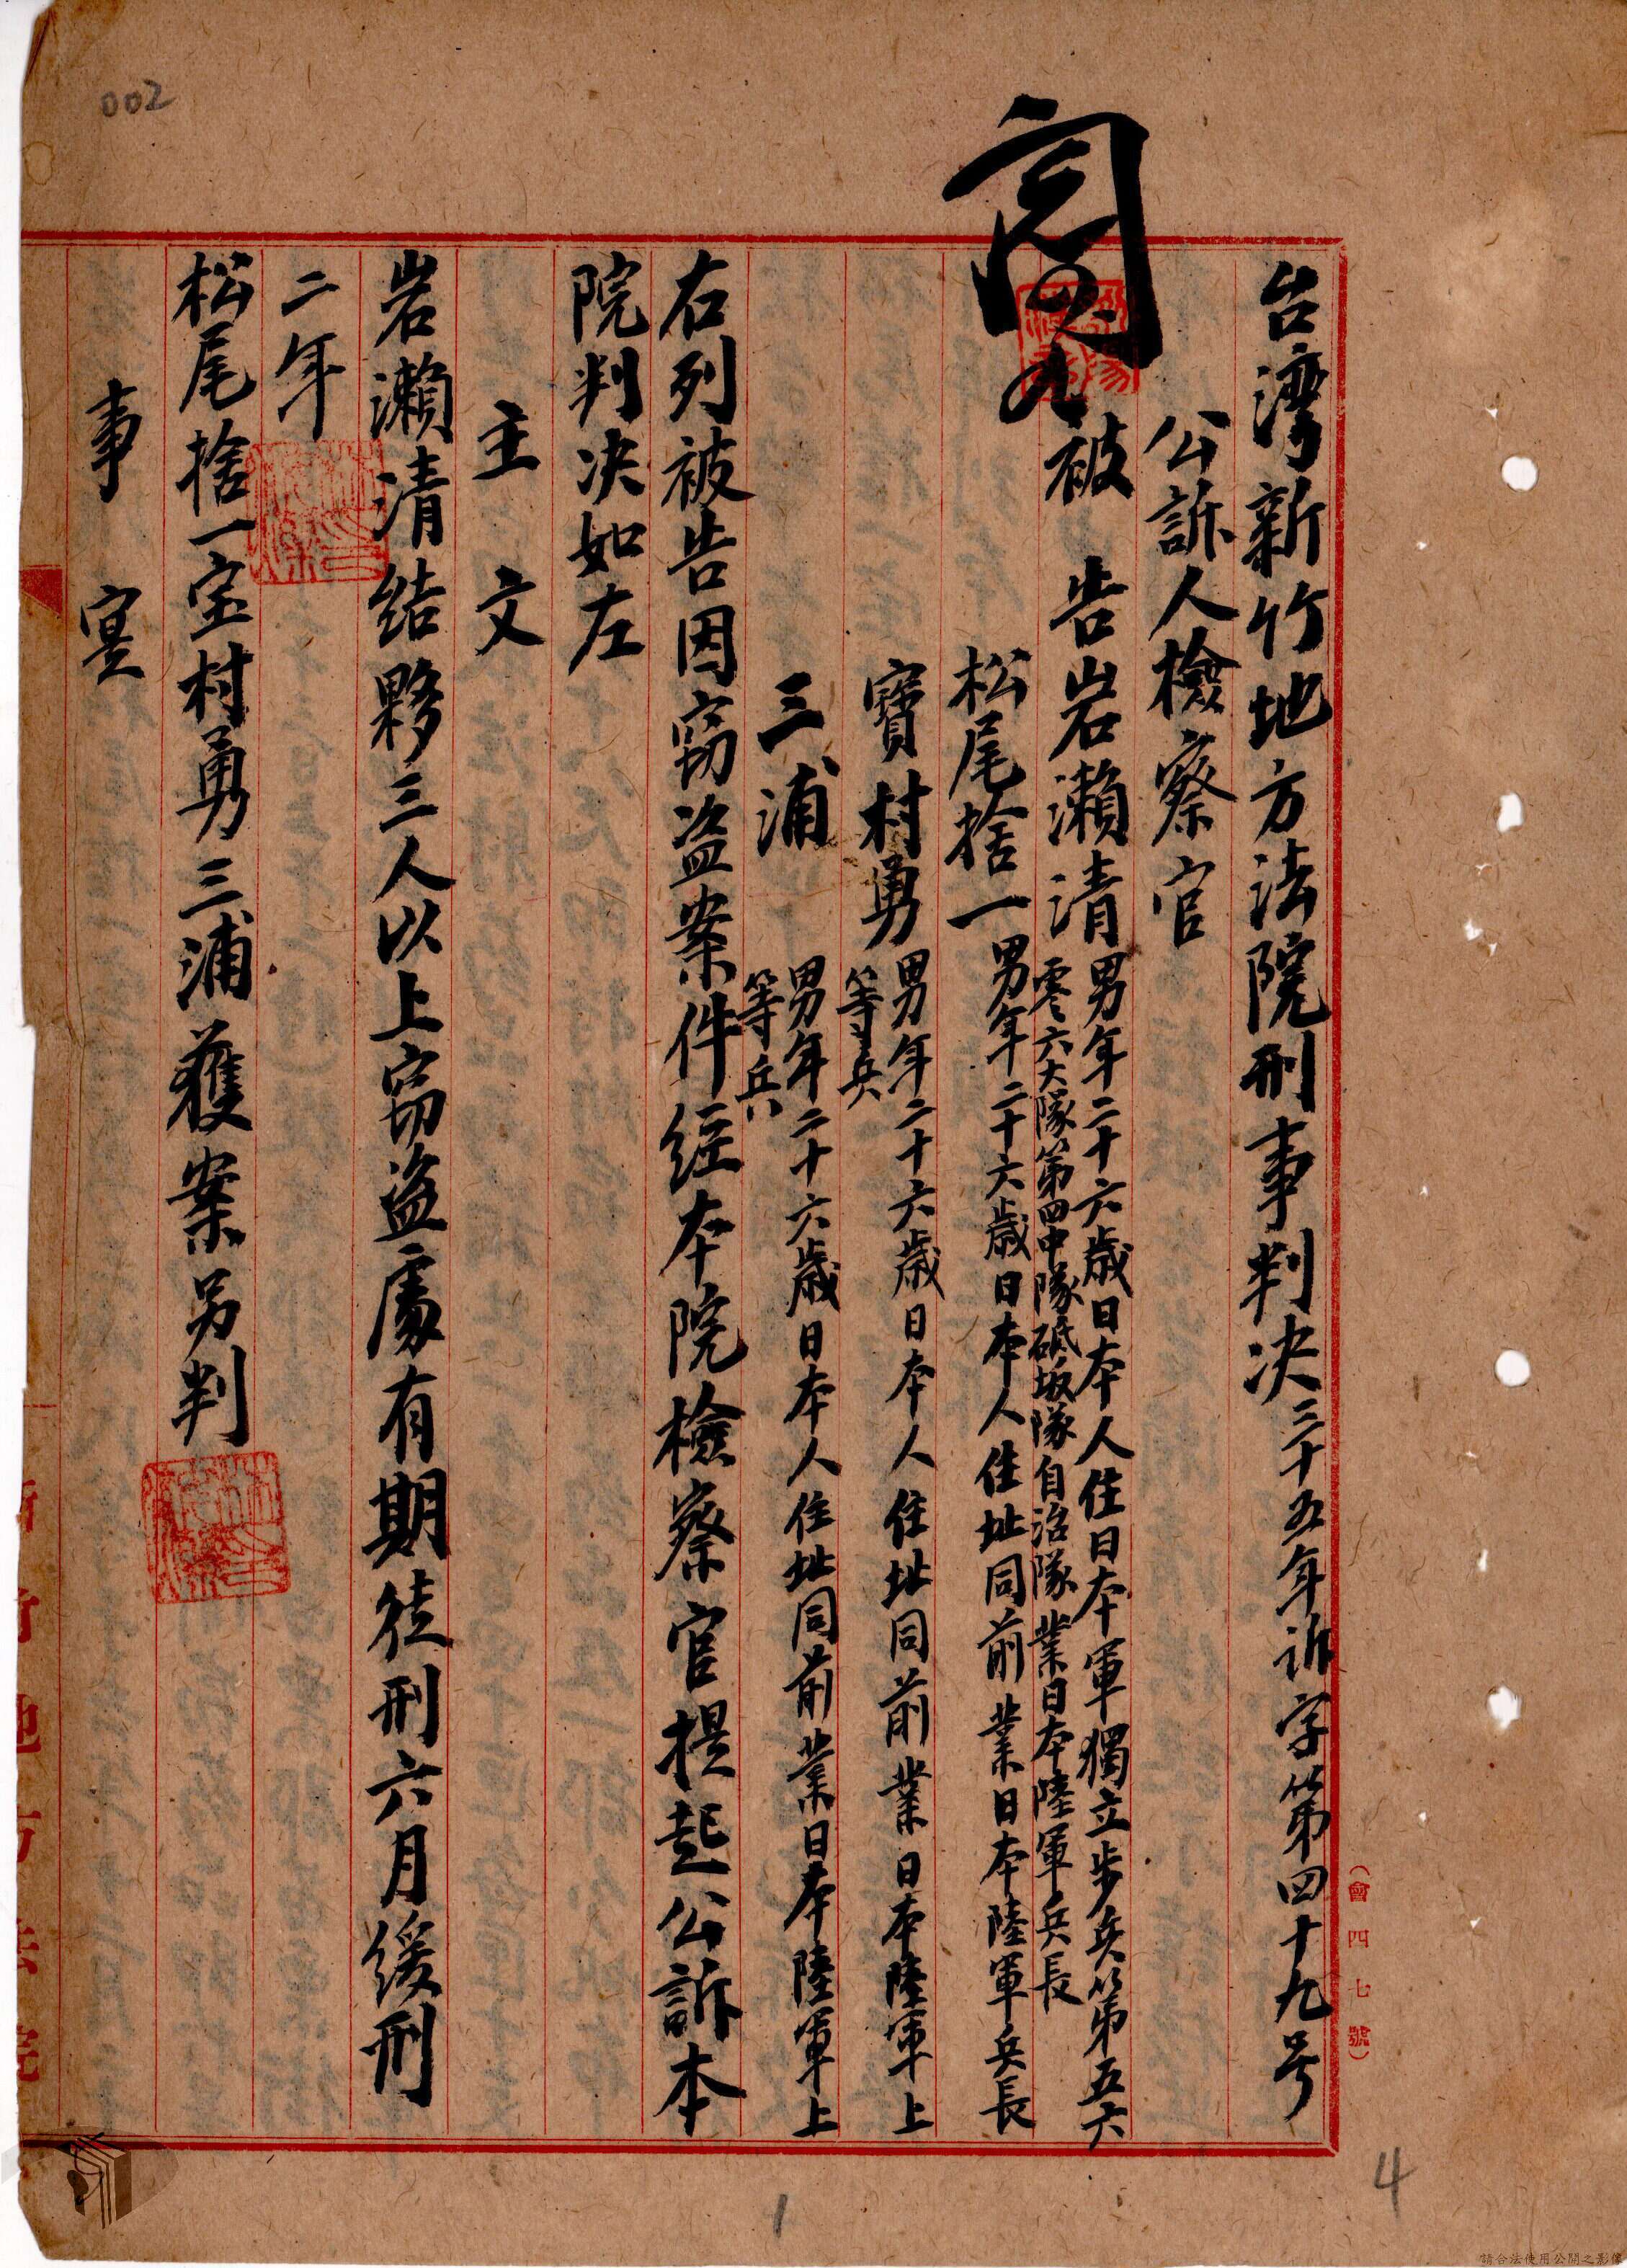 002
台湾新竹地方法院刑事判决三十五年诉字第四十九号
公訴人檢察官
被告岩瀨清男年二十六歳日本人住日本軍獨立步兵第五六
零六大隊第四中隊砥坂隊自治隊業日本陸軍兵長
松尾捨一男年二十六歳日本人住址同前業日本陸軍兵長
寶村勇男年二十六歳日本人住址同前業日本陸軍上
等兵
三浦男年二十六歳日本人住址同前業日本陸軍上
等兵
右列被告因窃盗案件経本院檢察官提起公訴本
院判决如左
主文
岩瀨清结夥三人以上窃盗處有期徒刑六月缓刑
二年
松尾捨一宝村勇三浦獲案另判
事実
(會四七號)
新竹地方法院
4
1
請合法使用公開之影像